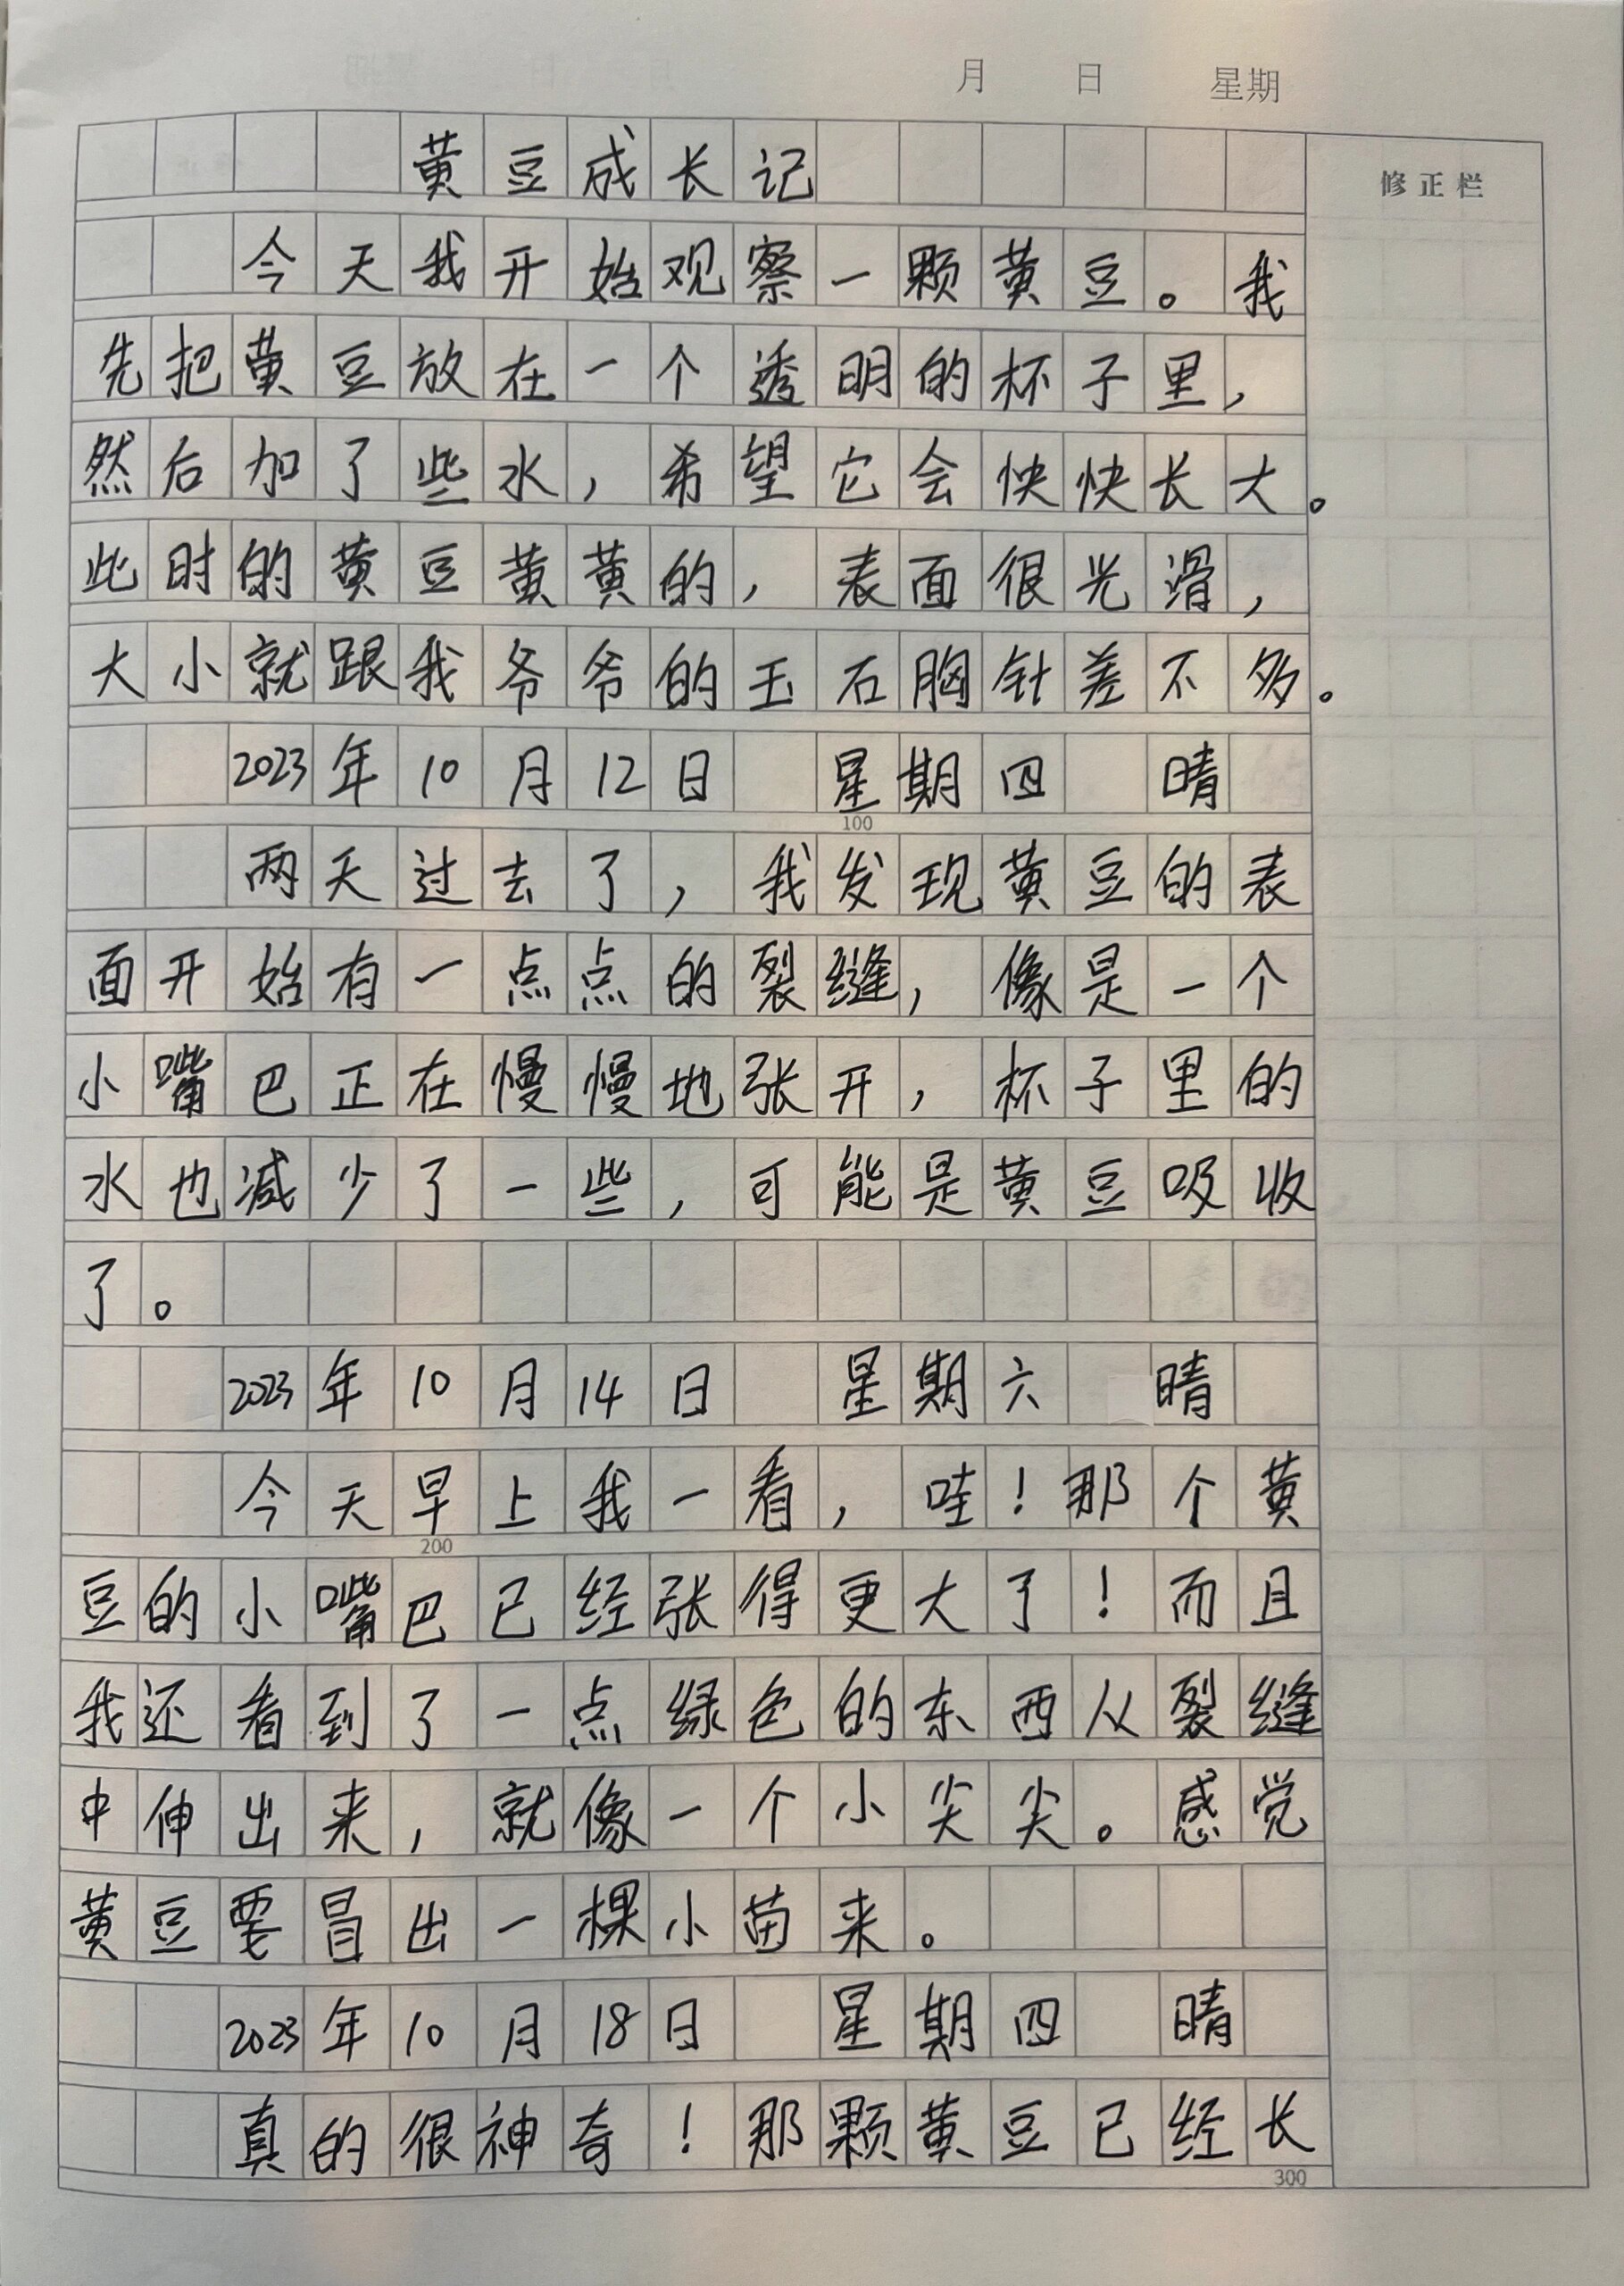 月 日 星期
修正栏
黄豆成长记
今天我开始观察一颗黄豆。我
先把黄豆放在一个透明的杯子里,
然后加了些水,希望它会快快长大。
此时的黄豆黄黄的,表面很光滑,
大小就跟我爷爷的玉石胸针差不多。
2023年10月12日 星期四 晴
100
两天过去了,我发现黄豆的表
面开始有一点点的裂缝,像是一个
小嘴巴正在慢慢地张开,杯子里的
水也减少了一些,可能是黄豆吸收
了。
2023年10月14日 星期六 晴
今天早上我一看,哇!那个黄
200
豆的小嘴巴已经张得更大了!而且
我还看到了一点绿色的东西从裂缝
中伸出来,就像一个小尖尖。感觉
黄豆要冒出一棵小苗来。
2023年10月18日 星期四 晴
真的很神奇!那颗黄豆已经长
300